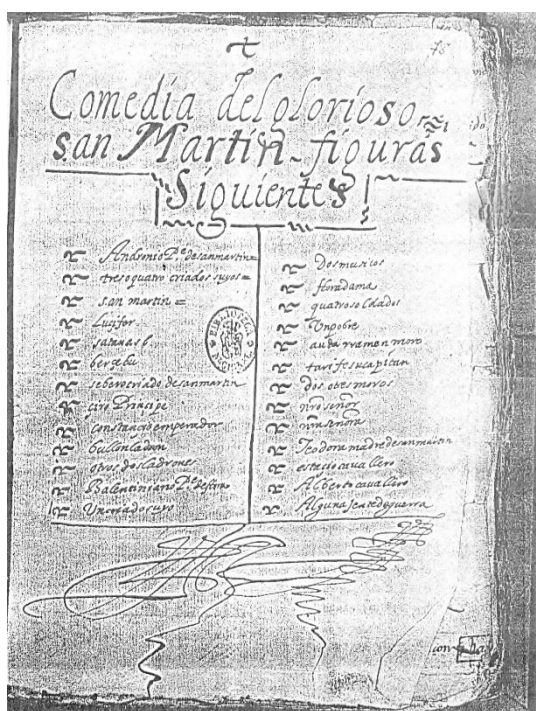 Comedia del glorioso
san Martin figuras
Siguientes
Andronio Pe. de san martin
tres o quatro criados suyos
san martin
Luzifer
satanas
berzebu
sebero criado de san martin
çiro Prinçipe
constançio emperador
bullon ladron
otros dos ladrones
Balentiniano Pe. de
Un criado suyo
Dos musicos
flora dama
quatro soldados
Un pobre
audarramen moro
tarife su capitan
dos o tres moros
nro señor
nra señora
Teodora madre de san martin
estaçio cavallero
Alberto cavallero
Alguna jente de guerra
BIBLIOTECA